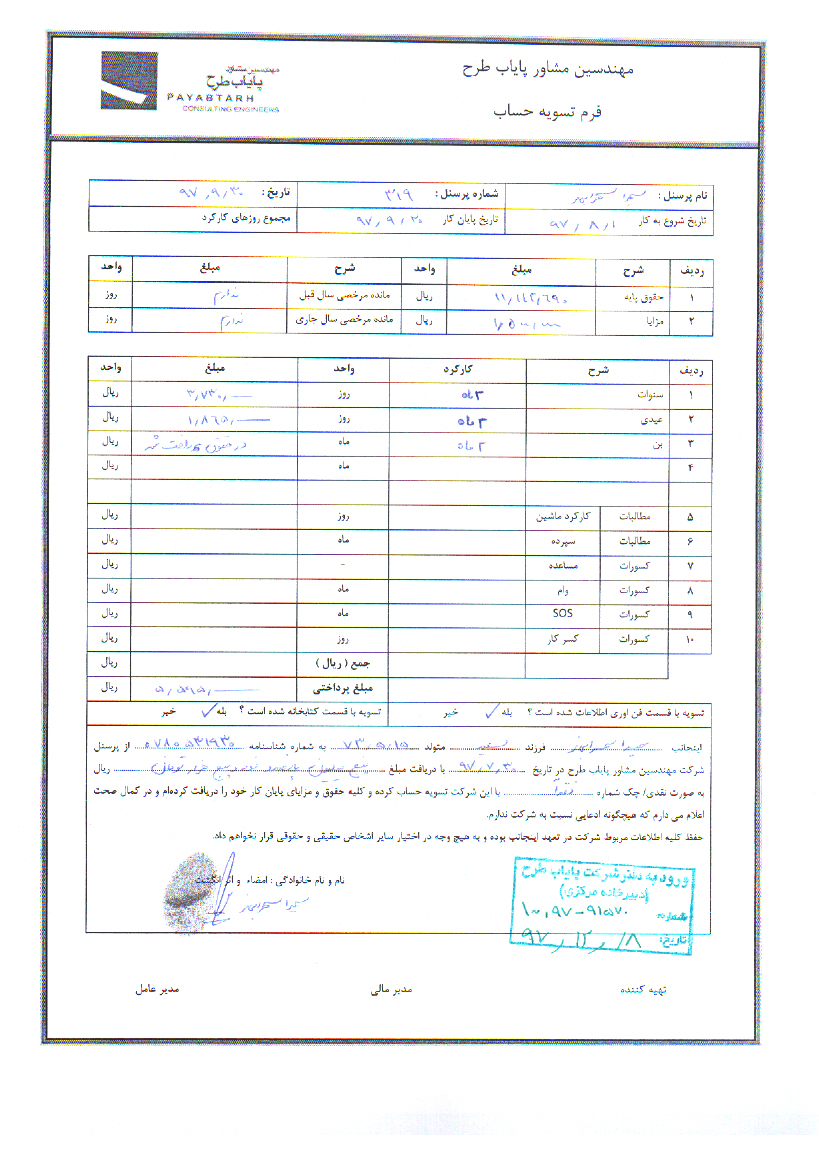 مهندسین مشاور پایاب طرح
مهندسین مشاور
پایاب طرح
PAYABTARH
CONSULTING ENGINEERS
فرم تسویه حساب
نام پرسنل : شماره پرسنل : ۳۱۹ تاریخ : ۹۷,۹,۳۰
تاریخ شروع به کار ۹۷,۸,۱ تاریخ پایان کار ۹۷,۹,۳۰ مجموع روزهای کارکرد
ردیف شرح مبلغ واحد شرح مبلغ واحد
۱ حقوق پایه ۱۱,۱۴۲,۶۹۰ ریال مانده مرخصی سال قبل ندارم روز
۲ مزایا ریال مانده مرخصی سال جاری ندارم روز
ردیف شرح کارکرد واحد مبلغ واحد
۱ سنوات ۲ ماه روز ۳,۷۳۰,— ریال
۲ عیدی ۲ ماه روز ۱,۸۶۵,— ریال
۳ بن ۲ ماه ماه در حقوق پرداخت شد ریال
۴ ماه ریال
۵ مطالبات کارکرد ماشین روز ریال
۶ مطالبات سپرده ماه ریال
۷ کسورات مساعده - ریال
۸ کسورات وام ماه ریال
۹ کسورات SOS ماه ریال
۱۰ کسورات کسر کار روز ریال
جمع ( ریال ) ریال
مبلغ پرداختی ۵,۵۹۵,— ریال
تسویه با قسمت فن اوری اطلاعات شده است ؟ بله ✓ خیر تسویه با قسمت کتابخانه شده است ؟ بله ✓ خیر
اینجانب فرزند متولد ۷۳,۵,۱۵ به شماره شناسنامه از پرسنل
شرکت مهندسین مشاور پایاب طرح در تاریخ ۹۷,۷,۳۰ با دریافت مبلغ ریال
به صورت نقدی/ چک شماره با این شرکت تسویه حساب کرده و کلیه حقوق و مزایای پایان کار خود را دریافت کرده‌ام و در کمال صحت
اعلام می دارم که هیچگونه ادعایی نسبت به شرکت ندارم.
حفظ کلیه اطلاعات مربوط شرکت در تعهد اینجانب بوده و به هیچ وجه در اختیار سایر اشخاص حقیقی و حقوقی قرار نخواهم داد.
نام و نام خانوادگی : امضاء و اثر انگشت
ورود به دفتر شرکت پایاب طرح
(دبیرخانه مرکزی)
شماره: ۱۰,۹۷-۹۱۵۷۰
تاریخ: ۹۷,۱۲,۱۸
تهیه کننده مدیر مالی مدیر عامل